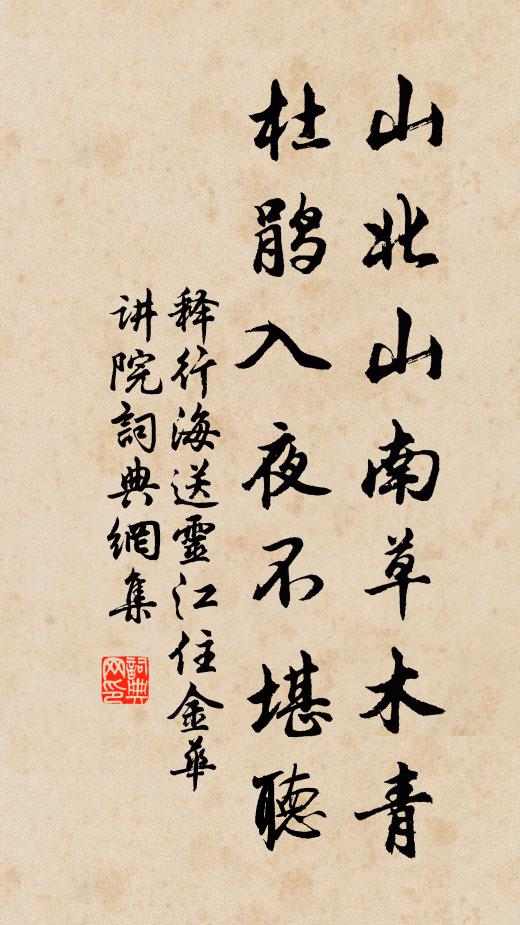 山北山南草木青
杜鹃入夜不堪聽
释行海送靈江住金華
讲院詞典網集
詞典网印